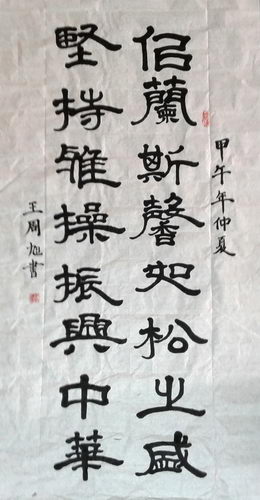 甲午年仲夏
似蘭斯馨如松之盛
堅持雅操振興中華
王周書